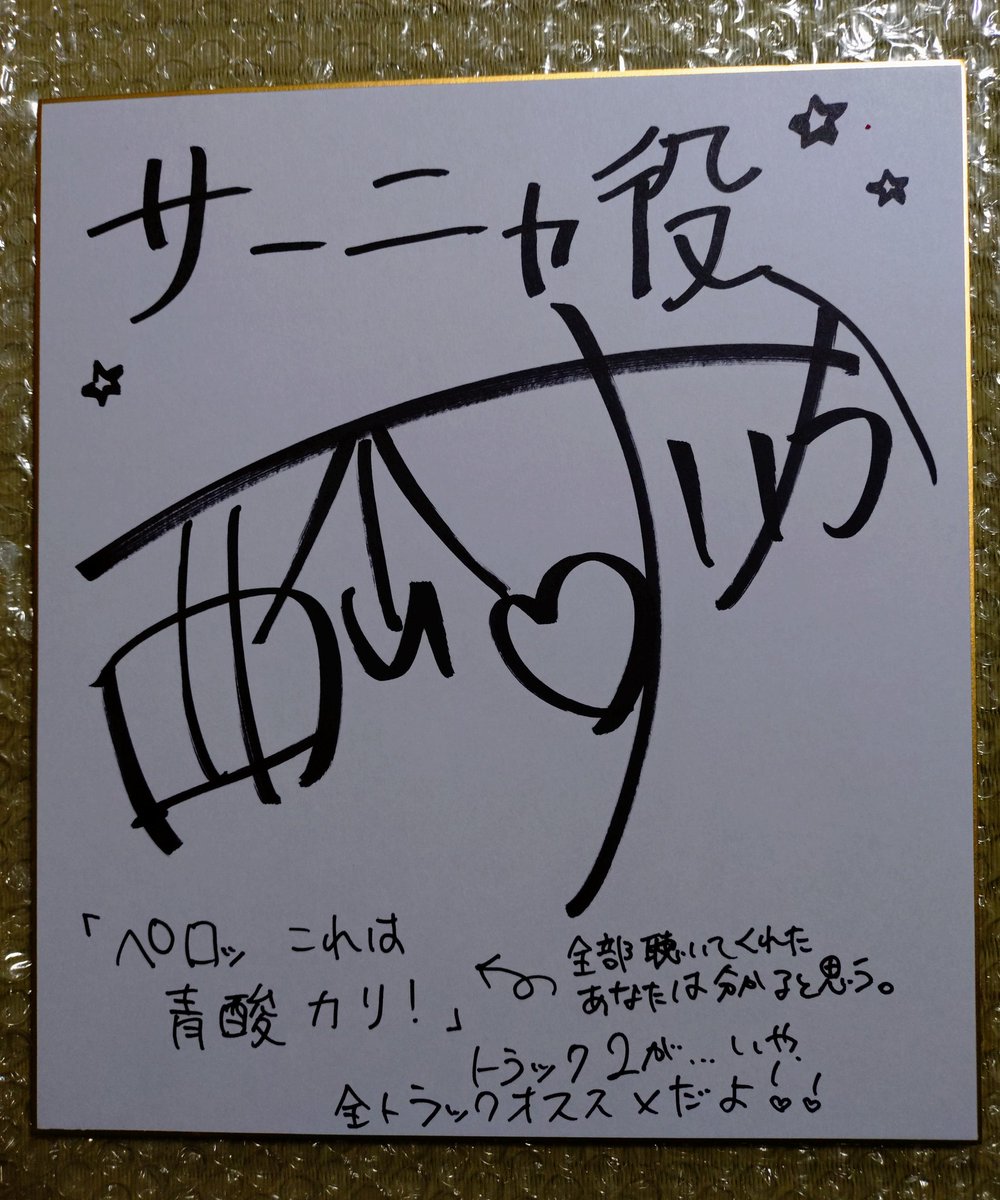 サーニャ役
「ペロッ これは
青酸カリ!」
全部聴いてくれた
あなたは分かると思う。
トラック2が…いや
全トラックオススメだよ!!